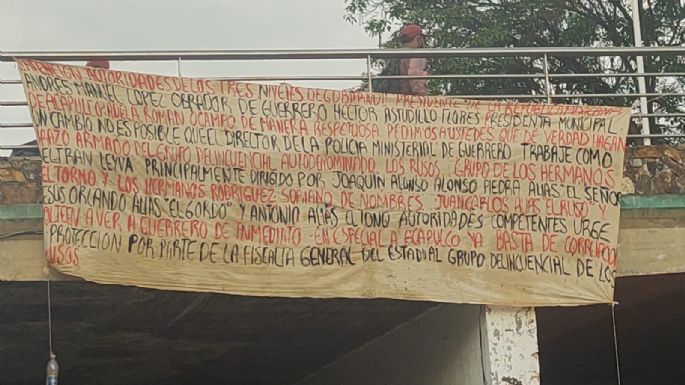 ATENCION AUTORIDADES DE LOS TRES NIVELES DE GOBIERNO PRESIDENTE DE LA REPUBLICA
ANDRES MANUEL LOPEZ OBRADOR DE GUERRERO HECTOR ASTUDILLO FLORES PRESIDENTA MUNICIPAL
DE ACAPULCO ADELA ROMAN OCAMPO DE MANERA RESPETUOSA PEDIMOS A USTEDES QUE DE VERDAD HAGAN
UN CAMBIO NO ES POSIBLE QUE EL DIRECTOR DE LA POLICIA MINISTERIAL DE GUERRERO TRABAJE COMO
BRAZO ARMADO DEL GRUPO DELINCUENCIAL AUTODENOMINADO LOS RUSOS GRUPO DE LOS HERMANOS
BELTRAN LEYVA PRINCIPALMENTE DIRIGIDO POR JOAQUIN ALONSO PIEDRA ALIAS EL SEÑOR
EL TORNO Y LOS HERMANOS RODRIGUEZ SORIANO DE NOMBRES JUAN CARLOS ALIAS EL RUSO
JESUS ORLANDO ALIAS "EL GORDO" Y ANTONIO ALIAS EL TONO AUTORIDADES COMPETENTES URGE
VOLTEEN A VER A GUERRERO DE INMEDIATO EN ESPECIAL A ACAPULCO YA BASTA DE CORRUPCION
PROTECCION POR PARTE DE LA FISCALIA GENERAL DEL ESTADO AL GRUPO DELINCUENCIAL DE LOS
RUSOS